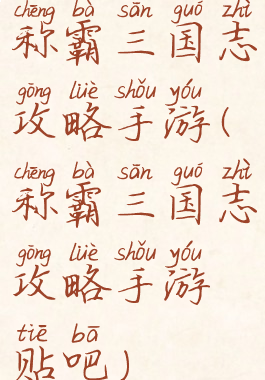 chēng bà sān guó zhì
称霸三国志
gōng lüè shǒu yóu
攻略手游(
chēng bà sān guó zhì
称霸三国志
gōng lüè shǒu yóu
攻略手游
tiē bā
贴吧)